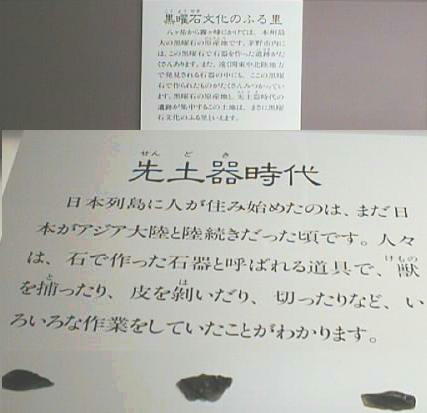 黒曜石文化のふる里
八ヶ岳から霧ヶ峰にかけては、本州最
大の黒曜石の原産地です。茅野市内に
は、この黒曜石で石器を作った遺跡がた
くさんあります。また、遠く関東や北陸地方
で発見される石器の中にも、ここの黒曜
石で作られたものがたくさんみつかってい
ます。黒曜石の原産地と、先土器時代の
遺跡が集中するこの土地は、まさに黒曜
石文化のふる里といえます。
せんどき
先土器時代
日本列島に人が住み始めたのは、まだ日
本がアジア大陸と陸続きだった頃です。人々
は、石で作った石器と呼ばれる道具で、獣
を捕ったり、皮を剝いだり、切ったりなど、い
ろいろな作業をしていたことがわかります。